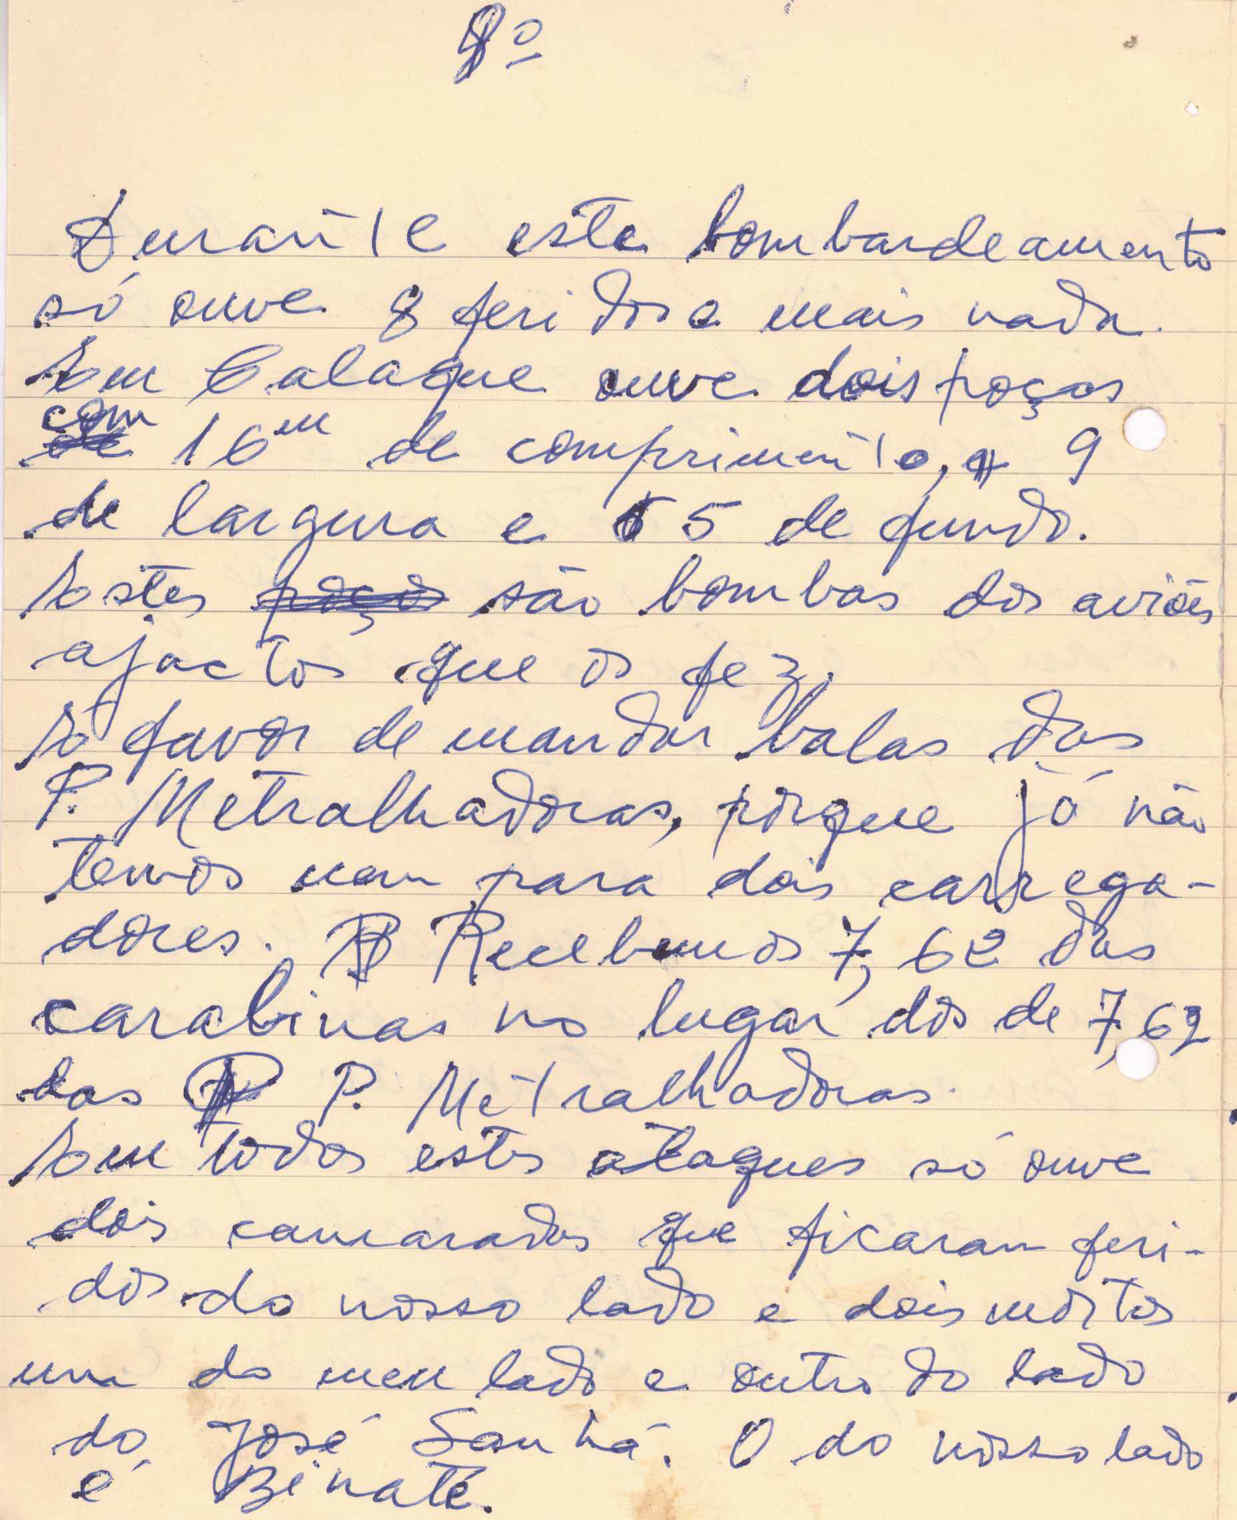 8º
Durante este bombardeamento
só ouve 8 feridos e mais nada.
Em Calaque ouve dois poços
com
de 16m de comprimento, 9
de largura e 5 de fundo.
Estes poços são bombas dos aviões
ajactos que os fez.
É favor de mandar balas das
P. Metralhadoras, porque já não
temos nem para dois carrega-
dores. Recebemos 7,62 das
carabinas no lugar dos de 7,62
das P. Metralhadoras.
Em todos estes ataques só ouve
dois camaradas que ficaram feri-
dos do nosso lado e dois mortos
um do meu lado e outro do lado
do José Sanhá. O do nosso lado
é Binaté.